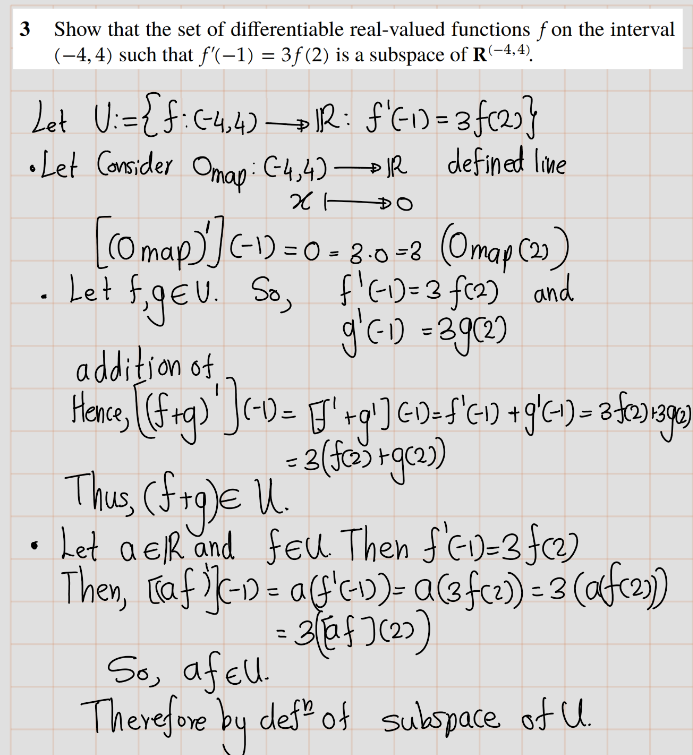 3 Show that the set of differentiable real-valued functions f on the interval
(−4, 4) such that f′(−1) = 3f(2) is a subspace of R^(−4,4).
Let U:={f:(-4,4)→ℝ: f'(-1)=3f(2)}
• Let Consider Omap: (-4,4)→ℝ defined line
x ↦ 0
[(Omap)'](-1)=0=3·0=3(Omap(2))
• Let f,g∈U. So, f'(-1)=3f(2) and
g'(-1)=3g(2)
addition of
Hence, [(f+g)'](-1)=[f'+g'](-1)=f'(-1)+g'(-1)=3f(2)+3g(2)
=3(f(2)+g(2))
Thus, (f+g)∈U.
• Let a∈ℝ and f∈U. Then f'(-1)=3f(2)
Then, [(af)'](-1)=a(f'(-1))=a(3f(2))=3(af(2))
=3([af](2))
So, af∈U.
Therefore by defⁿ of subspace of U.